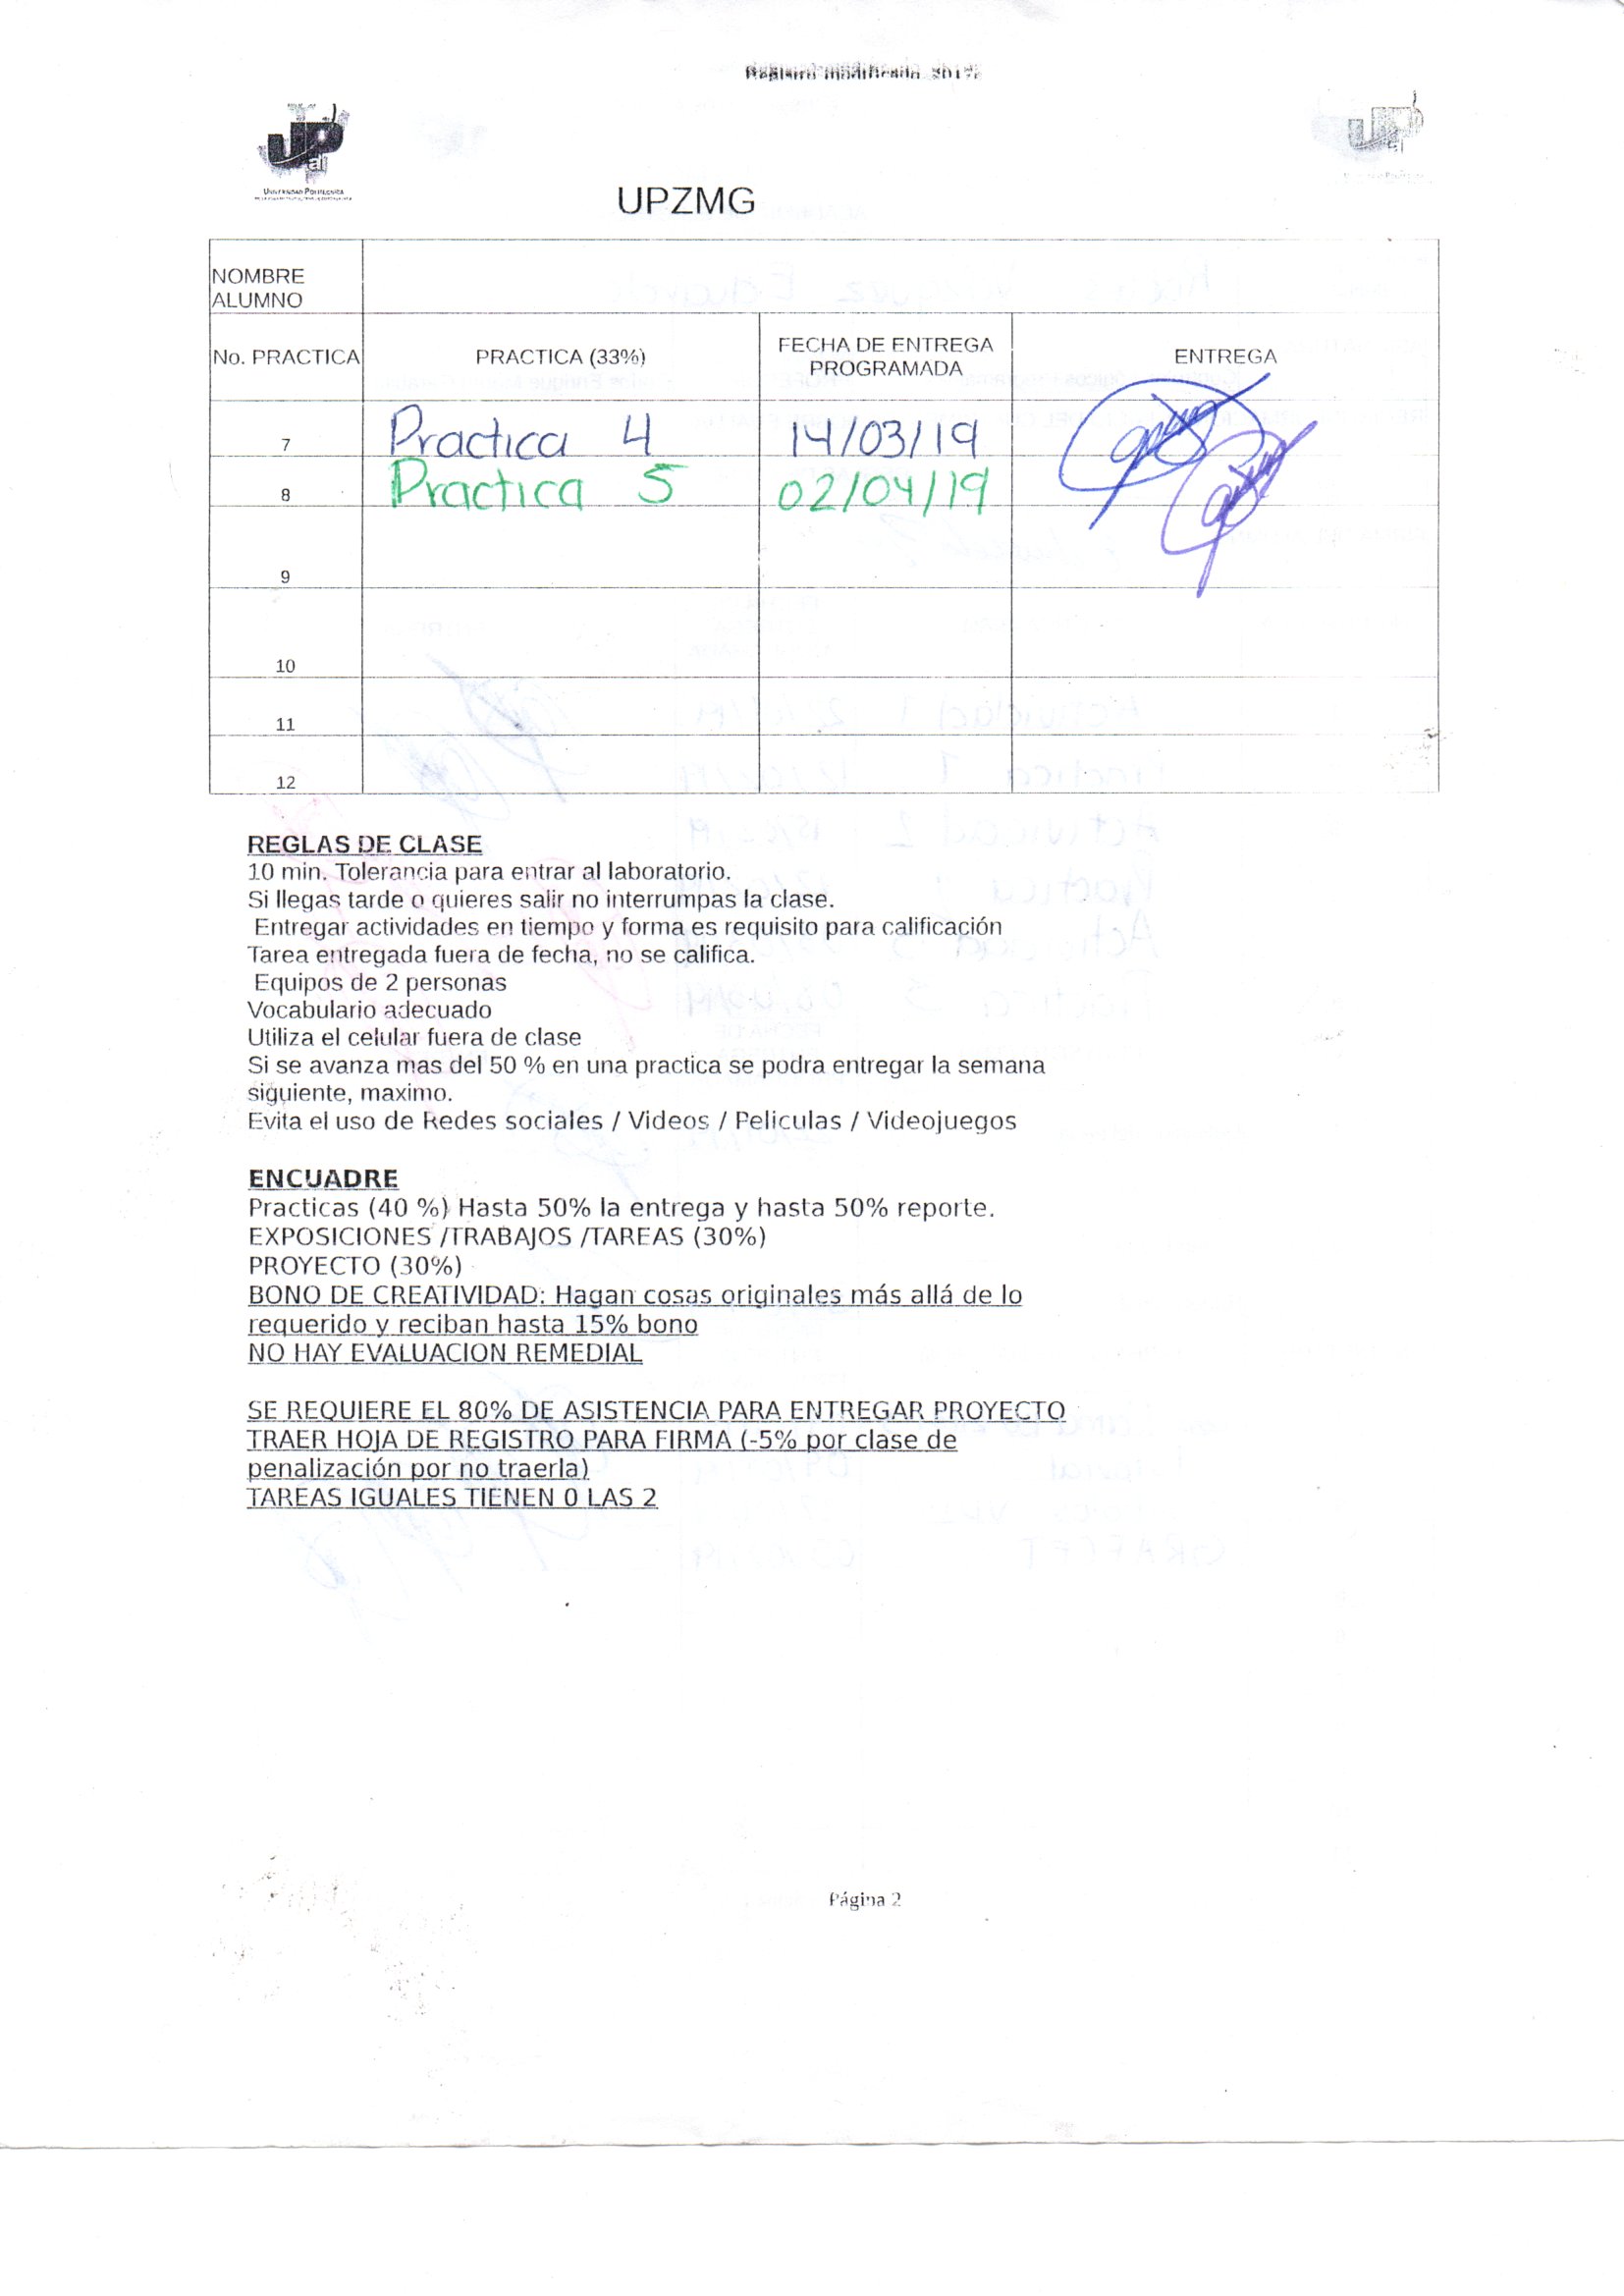 Registro modificado 2017.
UP
al
UNIVERSIDAD POLITECNICA
UPZMG
NOMBRE
ALUMNO
No. PRACTICA PRACTICA (33%) FECHA DE ENTREGA PROGRAMADA ENTREGA
7 Practica 4 14/03/19
8 Practica 5 02/04/19
9
10
11
12
REGLAS DE CLASE
10 min. Tolerancia para entrar al laboratorio.
Si llegas tarde o quieres salir no interrumpas la clase.
Entregar actividades en tiempo y forma es requisito para calificación
Tarea entregada fuera de fecha, no se califica.
Equipos de 2 personas
Vocabulario adecuado
Utiliza el celular fuera de clase
Si se avanza mas del 50 % en una practica se podra entregar la semana
siguiente, maximo.
Evita el uso de Redes sociales / Videos / Peliculas / Videojuegos
ENCUADRE
Practicas (40 %) Hasta 50% la entrega y hasta 50% reporte.
EXPOSICIONES /TRABAJOS /TAREAS (30%)
PROYECTO (30%)
BONO DE CREATIVIDAD: Hagan cosas originales más allá de lo
requerido y reciban hasta 15% bono
NO HAY EVALUACION REMEDIAL
SE REQUIERE EL 80% DE ASISTENCIA PARA ENTREGAR PROYECTO
TRAER HOJA DE REGISTRO PARA FIRMA (-5% por clase de
penalización por no traerla)
TAREAS IGUALES TIENEN 0 LAS 2
Página 2